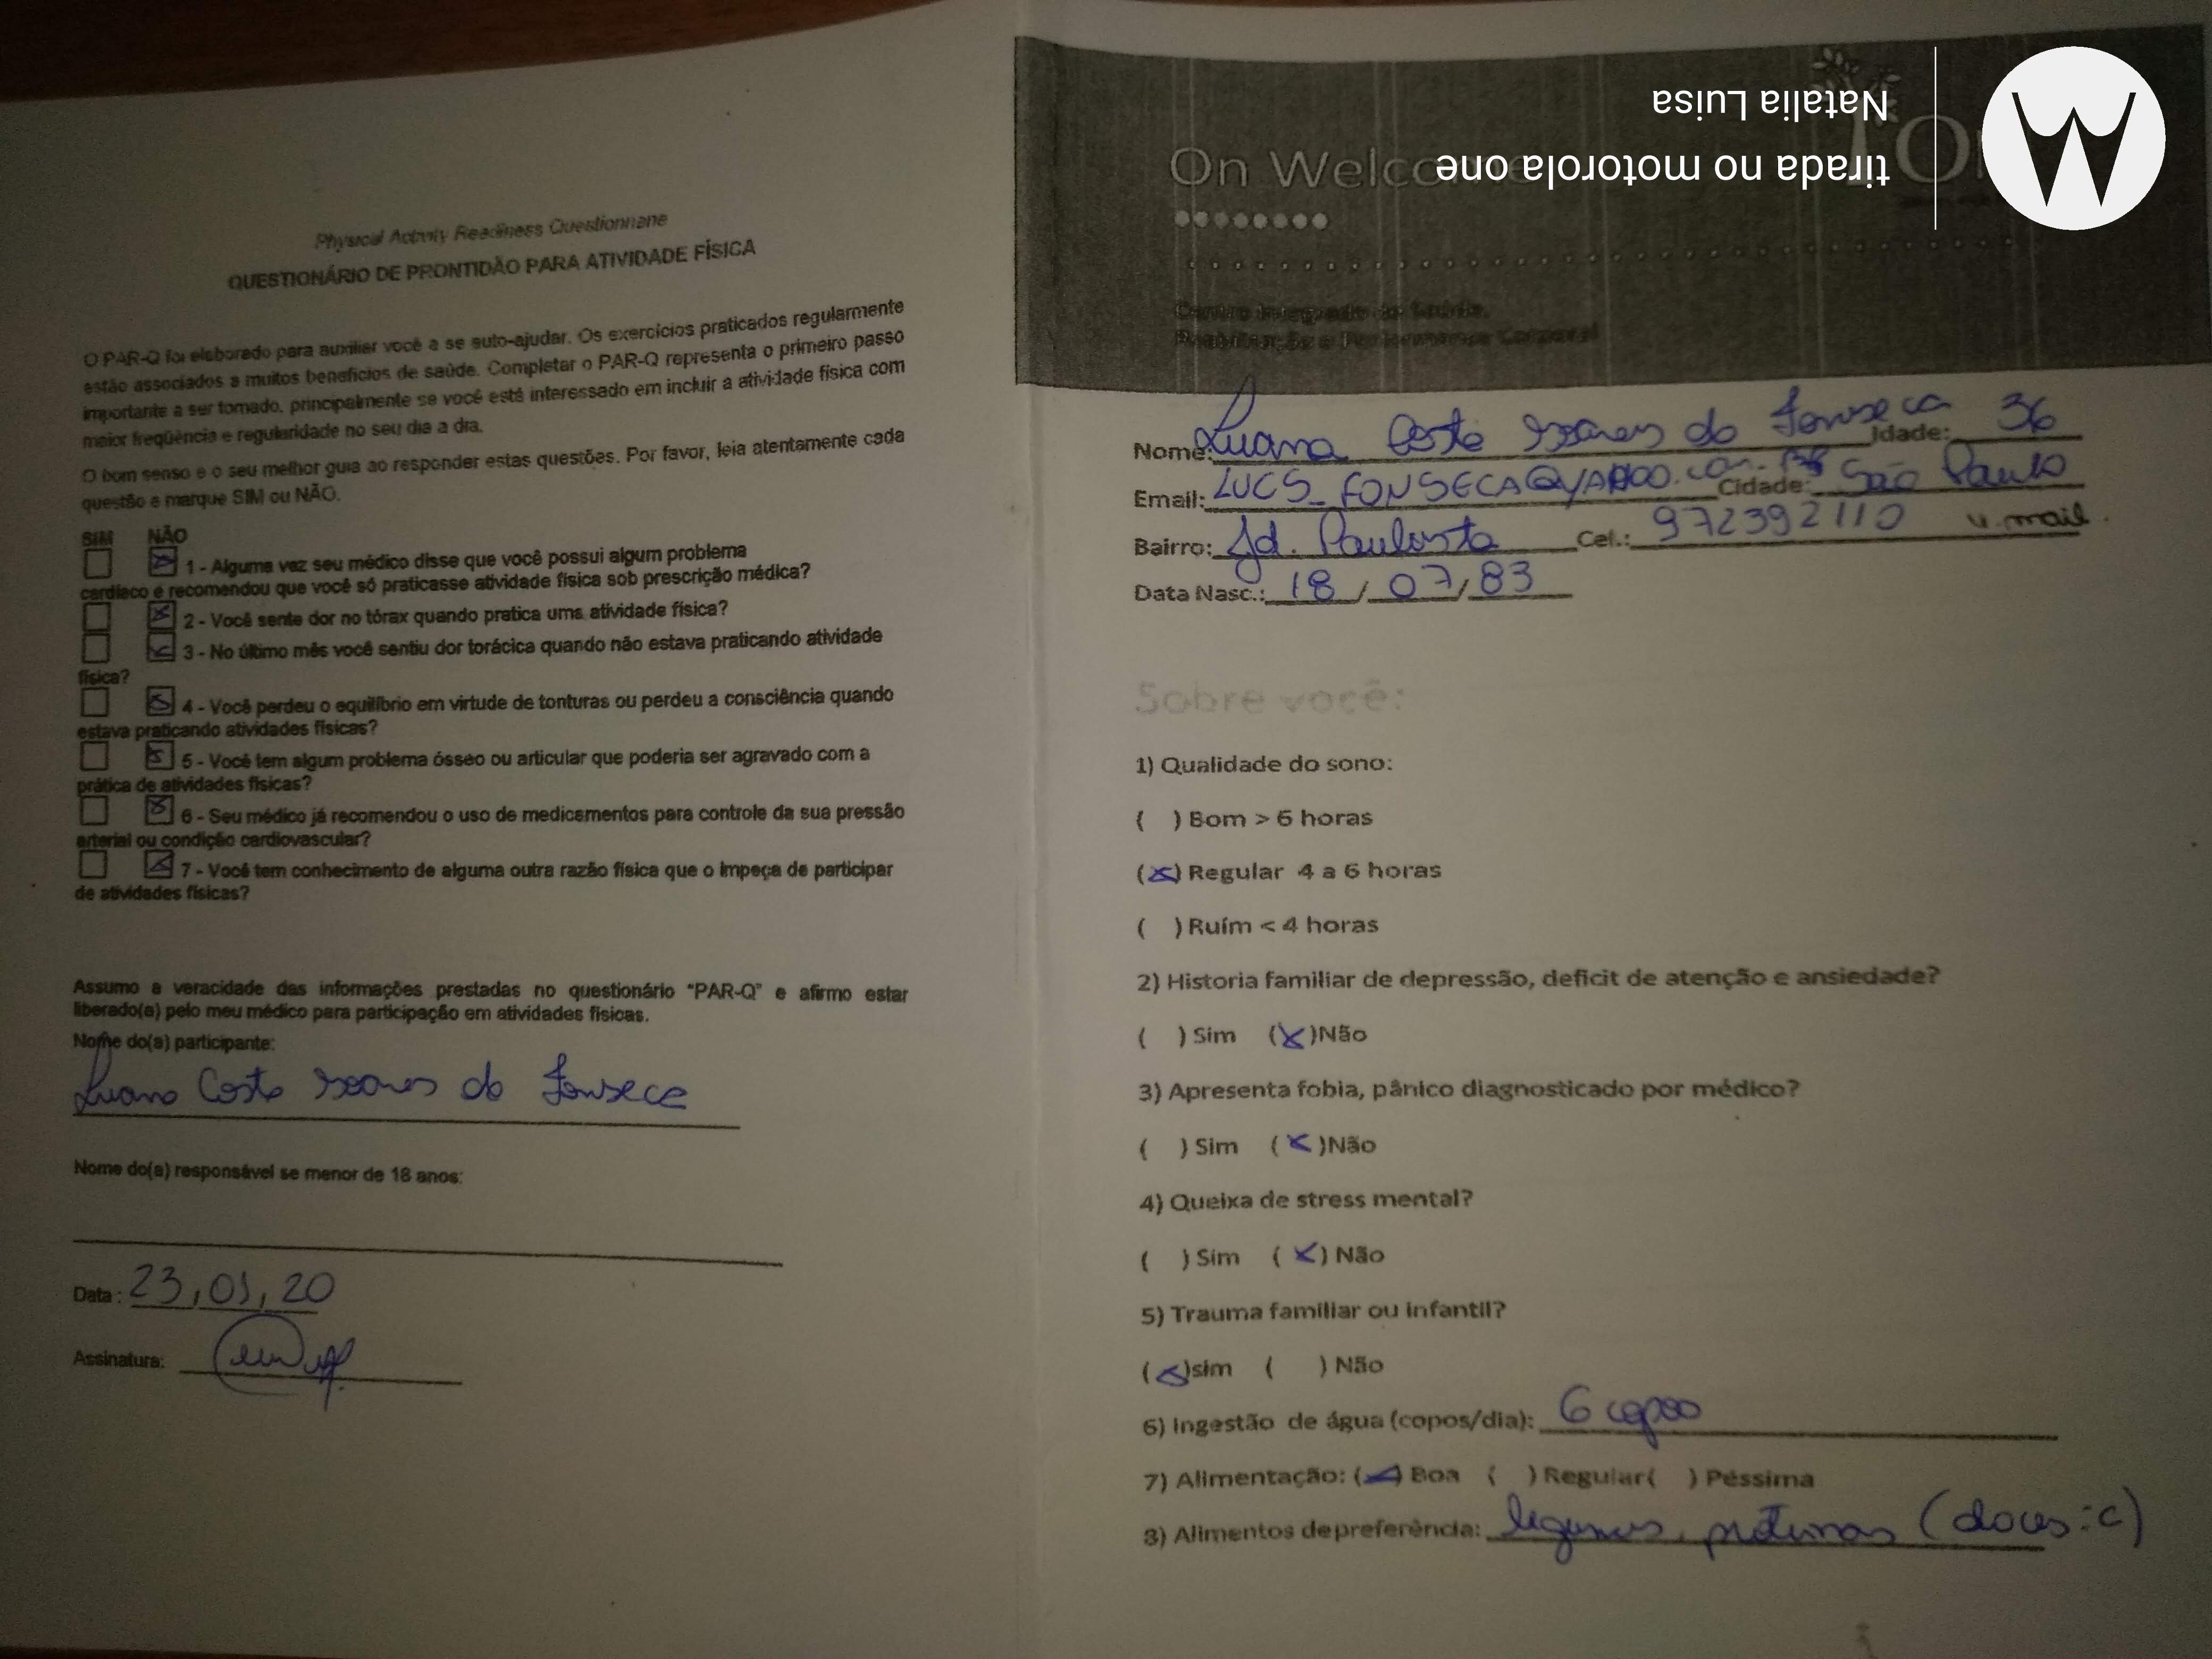 Physical Activity Readiness Questionnaire
QUESTIONÁRIO DE PRONTIDÃO PARA ATIVIDADE FÍSICA
O PAR-Q foi elaborado para auxiliar você a se auto-ajudar. Os exercícios praticados regularmente
estão associados a muitos benefícios de saúde. Completar o PAR-Q representa o primeiro passo
importante a ser tomado, principalmente se você está interessado em incluir a atividade física com
maior freqüência e regularidade no seu dia a dia.
O bom senso e o seu melhor guia ao responder estas questões. Por favor, leia atentamente cada
questão e marque SIM ou NÃO.
SIM NÃO
1 - Alguma vez seu médico disse que você possui algum problema
cardíaco e recomendou que você só praticasse atividade física sob prescrição médica?
2 - Você sente dor no tórax quando pratica uma atividade física?
3 - No último mês você sentiu dor torácica quando não estava praticando atividade
física?
4 - Você perdeu o equilíbrio em virtude de tonturas ou perdeu a consciência quando
estava praticando atividades físicas?
5 - Você tem algum problema ósseo ou articular que poderia ser agravado com a
prática de atividades físicas?
6 - Seu médico já recomendou o uso de medicamentos para controle da sua pressão
arterial ou condição cardiovascular?
7 - Você tem conhecimento de alguma outra razão física que o impeça de participar
de atividades físicas?
Assumo a veracidade das informações prestadas no questionário “PAR-Q” e afirmo estar
liberado(a) pelo meu médico para participação em atividades físicas.
Nome do(a) participante:
Luana Costa Soares da Fonseca
Nome do(a) responsável se menor de 18 anos:
Data: 23, 01, 20
Assinatura:
On Welcome
Centro Integrado de Saúde,
Corporal
Nome: Luana Costa Soares da Fonseca Idade: 36
Email: LUCS_FONSECA@YAHOO.com.br Cidade: São Paulo
Bairro: Jd. Paulista Cel.: 972392110 v. mail.
Data Nasc.: 18 / 07 / 83
Sobre você:
1) Qualidade do sono:
( ) Bom > 6 horas
(x) Regular 4 a 6 horas
( ) Ruím < 4 horas
2) Historia familiar de depressão, deficit de atenção e ansiedade?
( ) Sim (x)Não
3) Apresenta fobia, pânico diagnosticado por médico?
( ) Sim (x)Não
4) Queixa de stress mental?
( ) Sim (x) Não
5) Trauma familiar ou infantil?
(x)sim ( ) Não
6) Ingestão de água (copos/dia): 6 copos
7) Alimentação: (x) Boa ( ) Regular( ) Péssima
8) Alimentos de preferência: legumes, proteínas (doces :c)
tirada no motorola one
Natalia Luisa